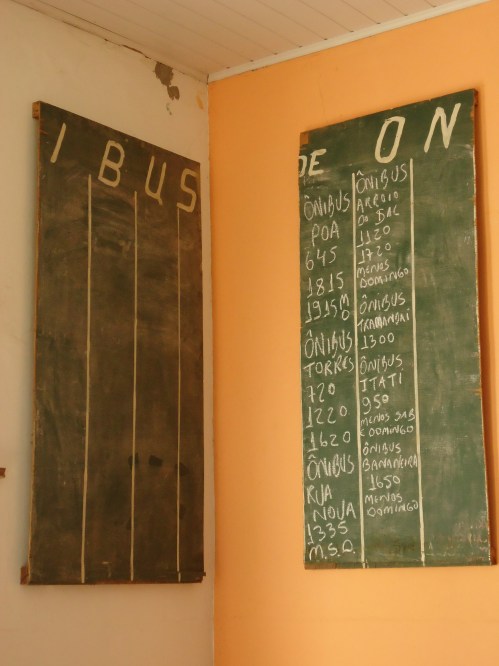 I BUS
DE ON
ÔNIBUS
POA
645
1815
1915 M
D
ÔNIBUS
TORRES
720
1220
1620
ÔNIBUS
RUA
NOVA
1335
M.S.D.
ÔNIBUS
ARROIO
DO BAC
1120
1720
MENOS
DOMINGO
ÔNIBUS
TRAMANDAÍ
1300
ÔNIBUS
ITATI
950
MENOS SAB
E DOMINGO
ÔNIBUS
BANANEIRA
1650
MENOS
DOMINGO